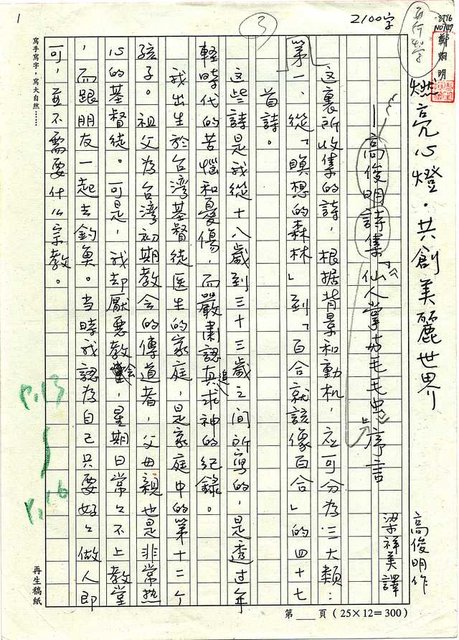 1
3
2100字
百行整
燃亮心燈．共創美麗世界
—高俊明詩集「仙人掌與毛毛蟲」序言
高俊明作
梁祥美譯
這裏所收集的詩，根据背景和動机，应可分為三大類：
第一、從「瞑想的森林」到「百合就該像百合」的四十七
首詩。
這些詩是我從十八歲到三十三歲之間所寫的，是透过年
輕時代的苦惱和憂傷，而嚴肅認真追求神的紀錄。
我出生於台湾基督徒医生的家庭，是家庭中的第十二个
孩子。祖父為台湾初期教会的傳道者，父母親也是非常热
心的基督徒。可是，我却厭惡教會，星期日常々不上教堂
，而跟朋友一起去釣魚。当時我認為自己只要好々做人即
可，並不需要什么宗教。
p.13
p.16
寫手寫字，寫大自然……
再生稿紙
第 頁（25×12＝300）